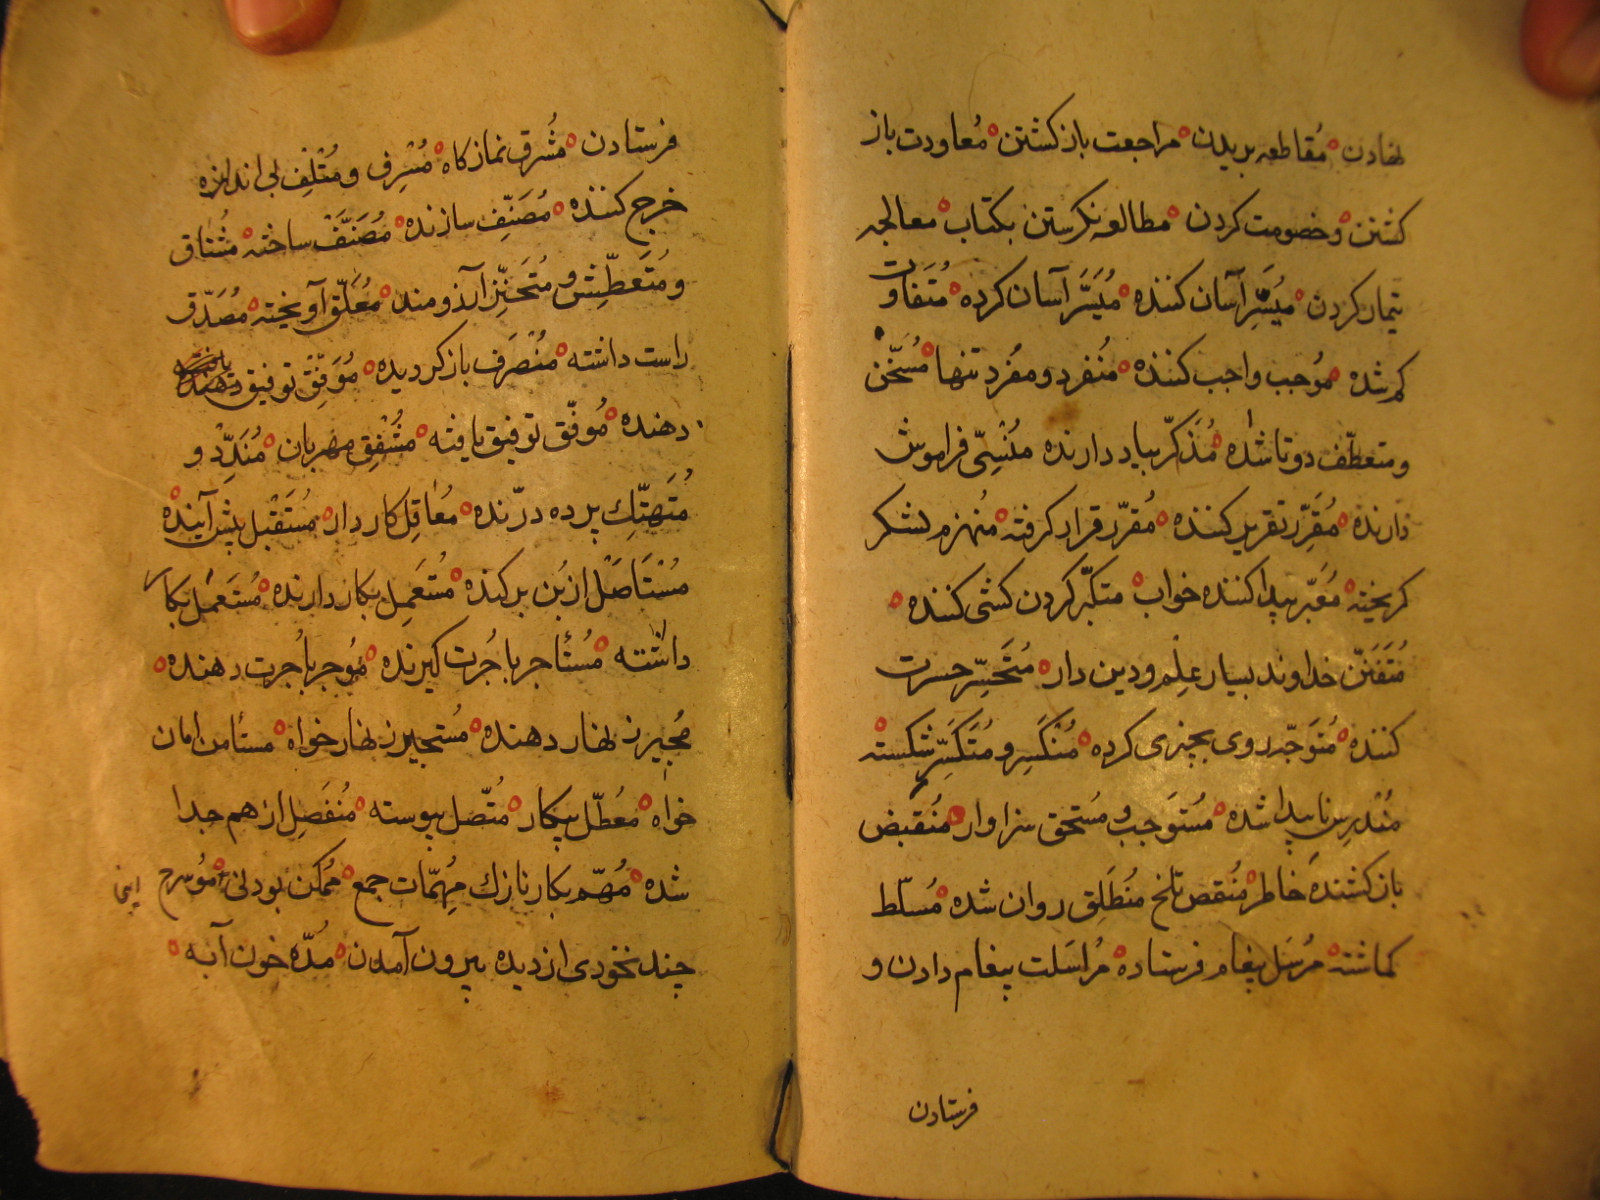 نهادن مُقاطعه بریدن مراجعت باز کشتن مُعاودت باز
کشتن و خصومت کردن مطالعه نکرستن بکتاب معالجه
تیمار کردن مُیَسِّر آسان کننده مُیَسَّر آسان کرده مُتَفاوت
کم شده مُوجب واجب کننده مُنفرد و مفرد تنها مُسَخَّن
و متعطّف دوتا شده مُذَکِّر بیاد دارنده مُنْسِی فراموش
دارنده مُقَرِّر تقریر کننده مُقرّر قرار کرفته مُنهزم لشکر
کریخته مُعَبّر پیدا کننده خواب متکبّر کردن کشی کننده
مُتَفَنّن خداوند بسیار عِلْم و دین دار مُتَحَسِّر حسرت
کننده مُتوَجّه روی بچیزی کرده مُنْکَسِر و مُتَکَسِّر شکسته
مُنْدرِس ناپیدا شده مُسْتَوجب و مُستحق سزاوار مُنقبض
باز کشنده خاطر مُنقص تلخ مُنطَلِق روان شده مُسلّط
کماشته مُرسَل پیغام فرستاده مُراسَلت پیغام دادن و
فرستادن
فرستادن مُشرق نماز کاه مُسْرِف و مُتْلِف بی اندازه
خرج کننده مُصَنِّف سازنده مُصَنَّف ساخته مُشتاق
و مُتَعَطِّش و مُتَحَنِّن آرزومند مُعَلّق آویخته مُصَدّق
راست داشته مُنْصَرَف باز کردیده مُوَفِّق توفیق
دهنده مُوفّق توفیق یافته مُشْفِق مهربان مُنَدِّد و
مُتَهَتِّك پرده درّنده مُعاقِل کاردار مُستَقْبل پیش آینده
مُسْتَاصَل از بُن برکنده مُستَعمِل بکار دارنده مُستَعمَل بکار
داشته مُستٔاجر باجُرت کیرنده مُوجر باجُرت دهنده
مُجیر زنهار دهنده مُستجیر زنهار خواه مستٔامن امان
خواه مُعُطّل بیکار مُتّصل پیوسته مُنْفَصِل از هم جدا
شده مُهِمّ بکار نازك مُهِمّات جمع مُمکن بودنی مُوسرح اینی
چند نخودی از دیده بیرون آمدن مُدّه خون آبه